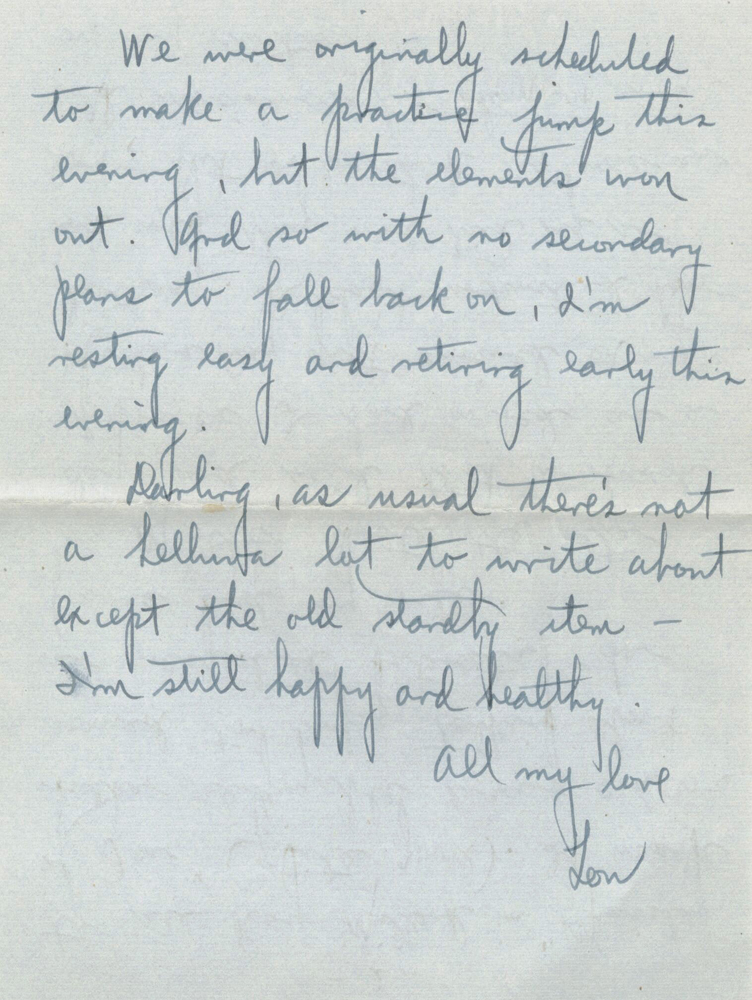 We were originally scheduled
to make a practice jump this
evening, but the elements won
out. And so with no secondary
plans to fall back on, I'm
resting easy and retiring early this
evening.
Darling, as usual there's not
a helluva lot to write about
except the old standby item —
I'm still happy and healthy.
All my love
Lou